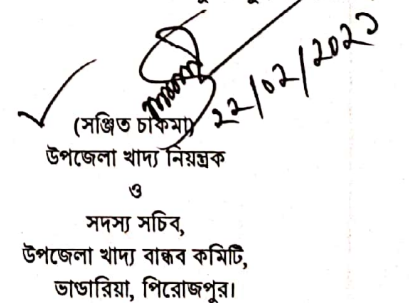 22/02/2023
(সঞ্জিত চাকমা)
উপজেলা খাদ্য নিয়ন্ত্রক
ও
সদস্য সচিব,
উপজেলা খাদ্য বান্ধব কমিটি,
ভান্ডারিয়া, পিরোজপুর।